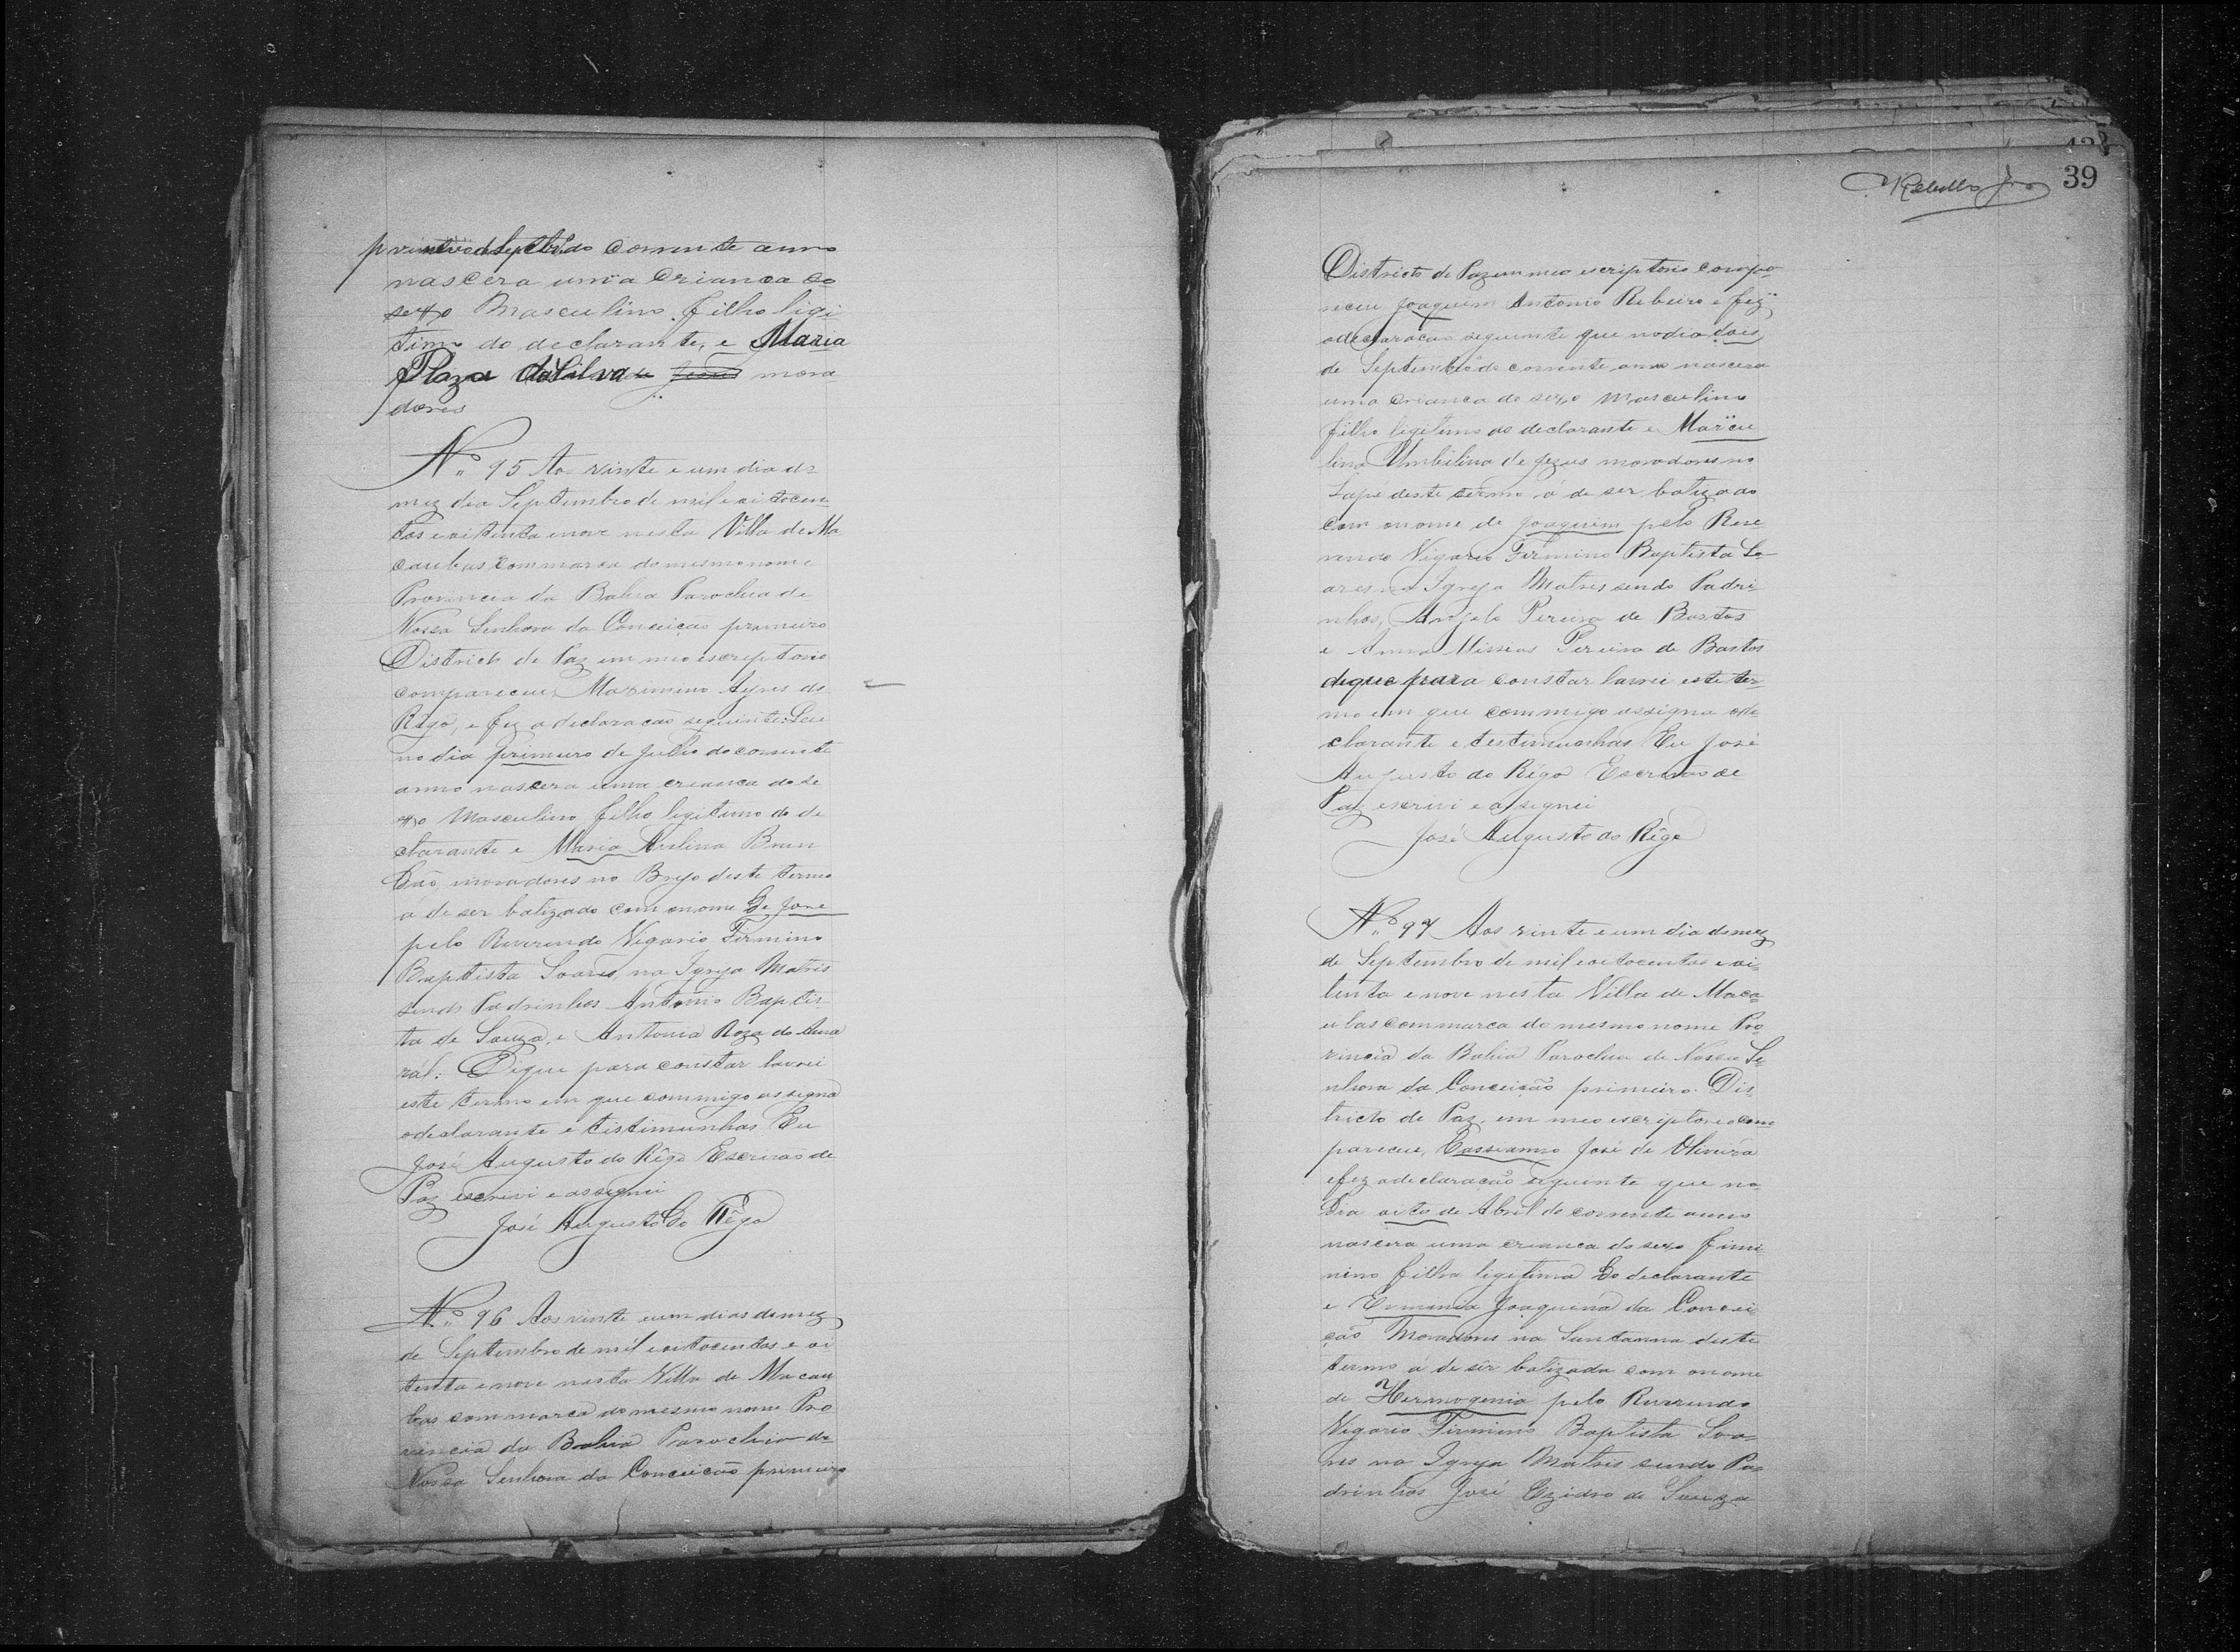 primeiro de Septbrº do corrente anno
nascera uma Crianca do
sexo Masculino filho ligi
timo do declarante, e Maria
Roza da Silva mora
dores
N.º 95 Ao vinte e um dia do
mez dia Septembro de mil e oitocen-
tos e oitenta e nove nesta Villa de Ma
caubas commarca do mesmo nome
Provincia da Bahia Parochia de
Nossa Senhora da Conceiçao primeiro
Districto de Paz em meo escriptorio
compareceu Maximino Ayres do
Rêgo, e fez a declaracão seguinte: Que
no dia primeiro de Julho do corrente
anno nascera uma creanca do se
xo Masculino filho legitimo do de
clarante e Maria Avelina Bran
dão, moradores no Brejo deste termo
á de ser batizado com o nome de Jose
pelo Reverendo Vigario Firmino
Baptista Soares, na Igreja Matris
sendo Padrinhos Antonio Baptis-
ta de Souza, e Antonia Roza do Ama
rál: Dique para constar lavrei
este termo em que commigo assigna
o declarante e tistimunhas Eu
José Augusto do Rêgo Escrivão de
Paz escrivi e assignei
José Augusto do Rêgo
N.º 96 Aos vinte e um dias do mez
de Septembro de mil e oitocentos e oi
tenta e nove nesta Villa de Macau
bas commarca do mesmo nome Pro
vincia da Bahia Parochia de
Nossa Senhora da Conceicão primeiro
39
Districto de Paz em meo escriptorio compa-
receu Joaquim Antonio Ribeiro e fez
a declaracão seguinte que no dia dois
de Septembro do corrente anno nascera
uma Crianca do sexo Masculino
filho legitimo do declarante e Marcu
lina Umbilina de Jezus moradores no
Sapé deste termo á de ser batizado
com o nome de Joaquim pelo Reve-
rendo Vigario Firmino Baptista So-
ares na Igreja Matris sendo Padri-
nhos, Angelo Pereira de Bastos
e Anna Missias Pereira de Bastos
deque para constar lavrei este ter-
mo em que commigo assigna o de-
clarante e testimunhas Eu José
Augusto do Rêgo Escrivão de
Paz escrivi e assignei
José Augusto do Rêgo
N.º 97 Aos vinte e um dia do mez
de Septembro de mil e oitocentos e oi-
tenta e nove nesta Villa de Maca-
ubas commarca do mesmo nome Pro-
vincia da Bahia Parochia de Nossa Se-
nhora da Conceicão primeiro Dis-
tricto de Paz, em meo escriptorio com
pareceu, Cassianno José de Oliveira
e fez a declaracão siguinte que no
Dia oito de Abril do corrente anno
nascera uma crianca do sexo Fimi
nino filha ligitima do declarante
e Erminia Joaquina da Concei-
cão Moradores na Santanna deste
termo á de sêr batizada com o nome
de Hermogenia pelo Reverendo
Vigario Firmino Baptista Soa-
res na Igreja Matris sendo Pa-
drinhos José Ezidro de Souza